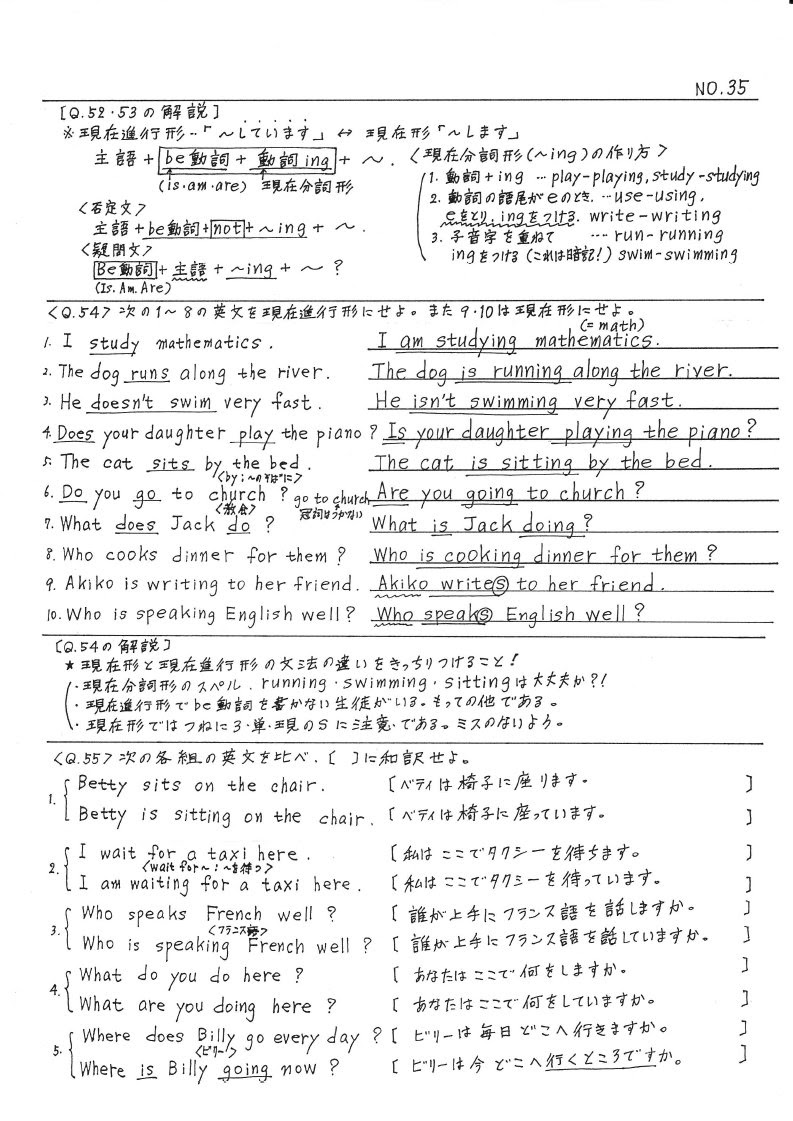 NO.35
[Q.52・53の解説]
※現在進行形…「〜しています」 ↔ 現在形「〜します」
主語+be動詞+動詞ing+〜. <現在分詞形(〜ing)の作り方>
(is・am・are) 現在分詞形
1. 動詞+ing …play-playing, study-studying
<否定文>
2. 動詞の語尾がeのとき. …use-using,
主語+be動詞+not+〜ing+〜.
eをとり, ingをつける. write-writing
<疑問文>
3. 子音字を重ねて …run-running
Be動詞+主語+〜ing+〜?
ingをつける(これは暗記!) swim-swimming
(Is.Am.Are)
<Q.54> 次の1〜8の英文を現在進行形にせよ。また9・10は現在形にせよ。
(=math)
1. I study mathematics. I am studying mathematics.
2. The dog runs along the river. The dog is running along the river.
3. He doesn't swim very fast. He isn't swimming very fast.
4. Does your daughter play the piano? Is your daughter playing the piano?
5. The cat sits by the bed. The cat is sitting by the bed.
<by:〜のそばに>
6. Do you go to church? go to church Are you going to church?
<教会> 冠詞はつかない
7. What does Jack do? What is Jack doing?
8. Who cooks dinner for them? Who is cooking dinner for them?
9. Akiko is writing to her friend. Akiko writes to her friend.
10. Who is speaking English well? Who speaks English well?
[Q.54の解説]
★現在形と現在進行形の文法の違いをきっちりつけること!
・現在分詞形のスペル. running・swimming・sittingは大丈夫か?!
・現在進行形でbe動詞を書かない生徒がいる。もっての他である。
・現在形ではつねに3・単・現のSに注意.である。ミスのないよう。
<Q.55> 次の各組の英文を比べ、[ ]に和訳せよ。
1. Betty sits on the chair. [ベティは椅子に座ります。]
Betty is sitting on the chair. [ベティは椅子に座っています。]
2. I wait for a taxi here. [私はここでタクシーを待ちます。]
<wait for〜:〜を待つ>
I am waiting for a taxi here. [私はここでタクシーを待っています。]
3. Who speaks French well? [誰が上手にフランス語を話しますか。]
<フランス語>
Who is speaking French well? [誰が上手にフランス語を話していますか。]
4. What do you do here? [あなたはここで何をしますか。]
What are you doing here? [あなたはここで何をしていますか。]
5. Where does Billy go every day? [ビリーは毎日どこへ行きますか。]
<ビリー>
Where is Billy going now? [ビリーは今どこへ行くところですか。]